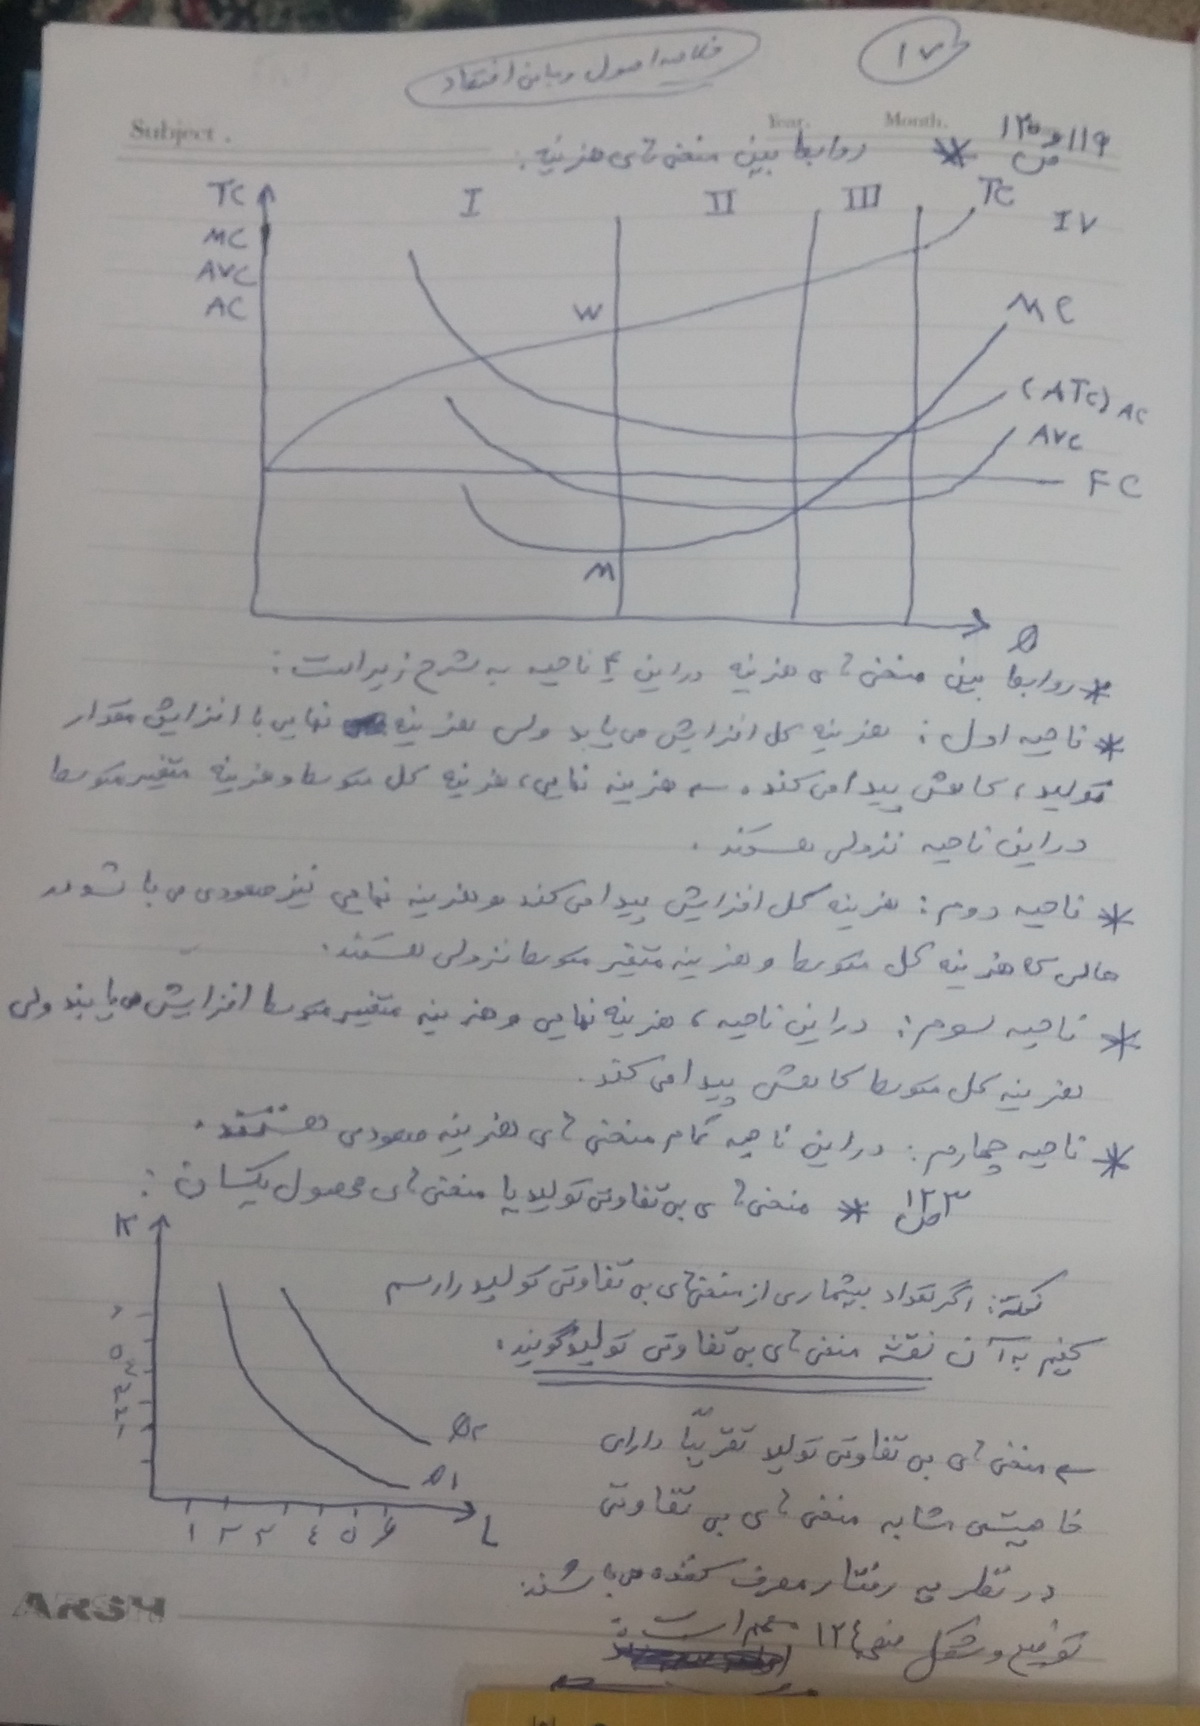 ۱۷
خلاصه اصول و مبانی اقتصاد
Subject.
Year.
Month.
ص ۱۱۹ و ۱۲۰
* روابط بین منحنی های هزینه:
TC
MC
AVC
AC
I
II
III
TC
IV
W
MC
(ATC) AC
AVC
FC
M
Q
* روابط بین منحنی های هزینه در این ۴ ناحیه به شرح زیر است:
* ناحیه اول: هزینه کل افزایش می یابد ولی هزینه نهایی با افزایش مقدار
تولید، کاهش پیدا می کند. هزینه نهایی، هزینه کل متوسط و هزینه متغیر متوسط
در این ناحیه نزولی هستند.
* ناحیه دوم: هزینه کل افزایش پیدا می کند و هزینه نهایی نیز صعودی می باشد در
حالی که هزینه کل متوسط و هزینه متغیر متوسط نزولی هستند.
* ناحیه سوم: در این ناحیه، هزینه نهایی و هزینه متغیر متوسط افزایش می یابند ولی
هزینه کل متوسط کاهش پیدا می کند.
* ناحیه چهارم: در این ناحیه تمام منحنی های هزینه صعودی هستند.
ص ۱۲۳ * منحنی های بی تفاوتی تولید یا منحنی های محصول یکسان:
K
نکته: اگر تعداد بیشماری از منحنی های بی تفاوتی تولید را رسم
کنیم به آن نقشه منحنی های بی تفاوتی تولید گویند.
۶
۵
۴
۳
۲
۱
Q۲
Q۱
۱ ۲ ۳ ۴ ۵ ۶
L
منحنی های بی تفاوتی تولید تقریباً دارای
خاصیتی مشابه منحنی های بی تفاوتی
در نظریه رفتار مصرف کننده می باشند.
توضیح و شکل صفحه ۱۲۴ مهم است
ARSH